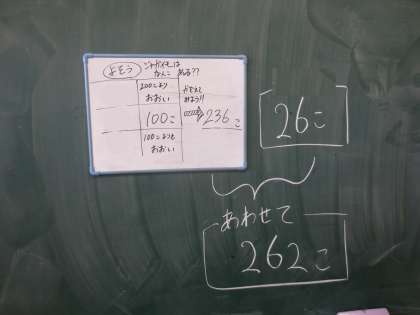 よそう
ジャガイモは
なんこ ある??
200こより
おおい
かぞえて
みよう!!
100こ
236こ
100こよりも
おおい
26こ
あわせて
262こ